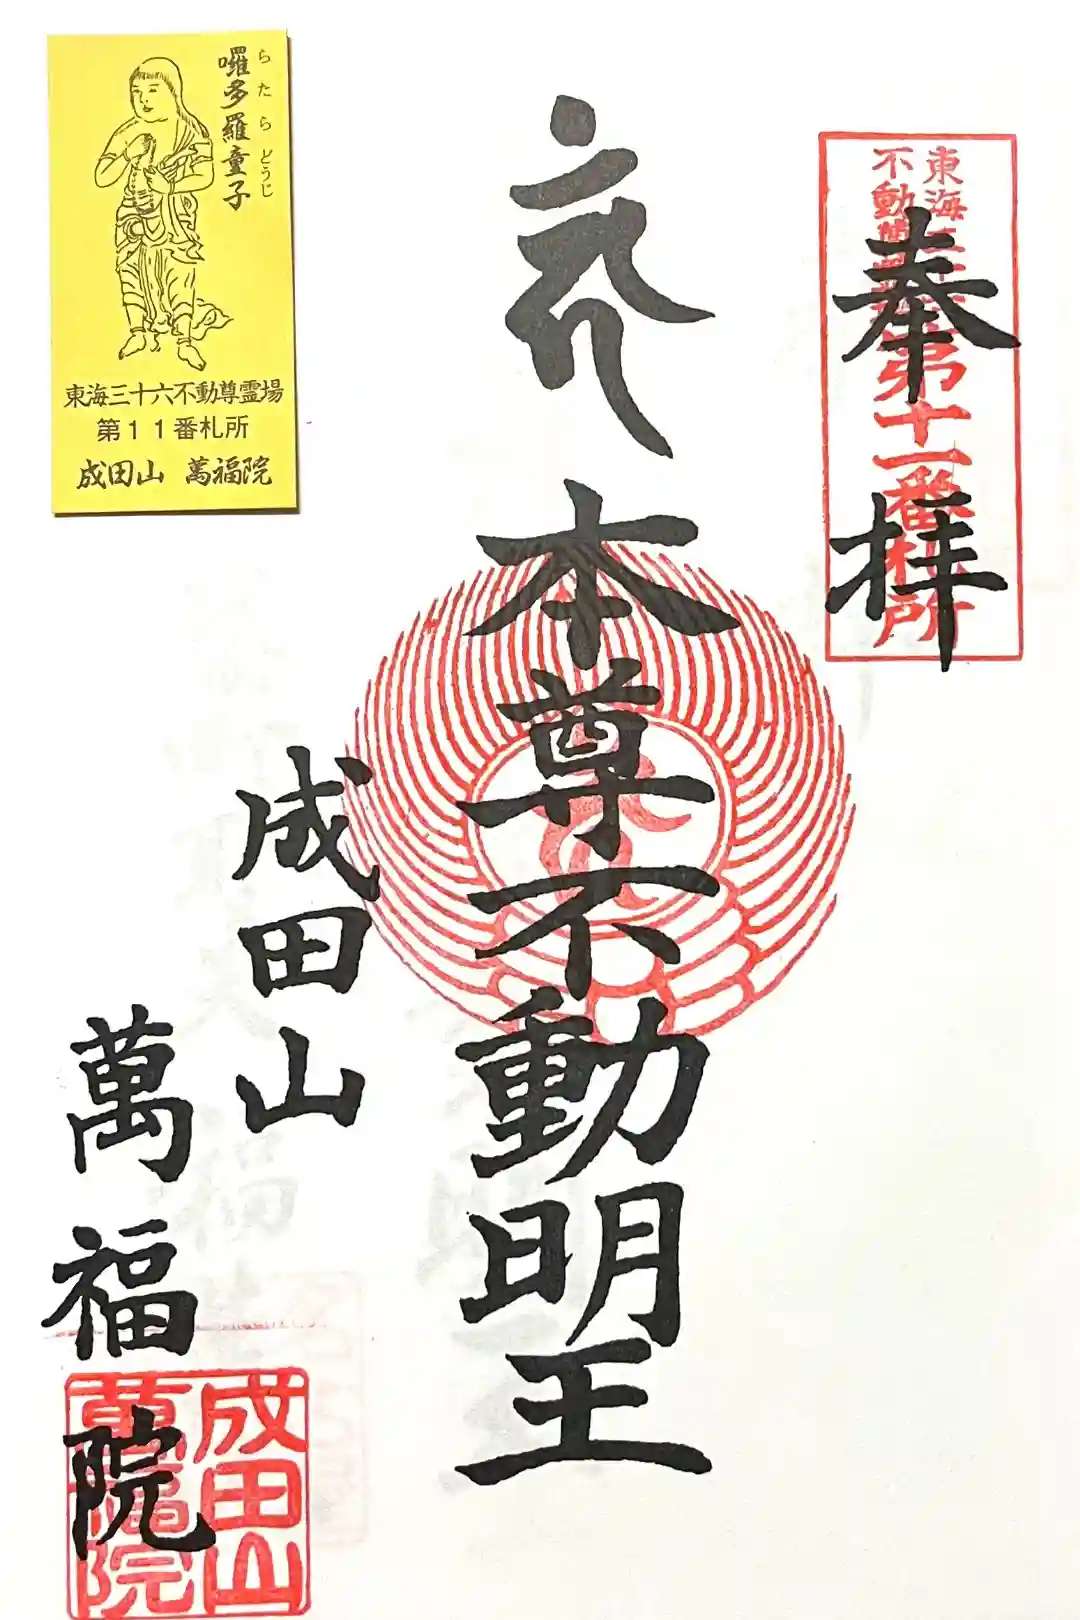 奉拝
東海三十六
不動尊霊場
第十一番札所
本尊不動明王
成田山
萬福院
成田山
萬福院
囉多羅童子
らたらどうじ
東海三十六不動尊霊場
第11番札所
成田山 萬福院